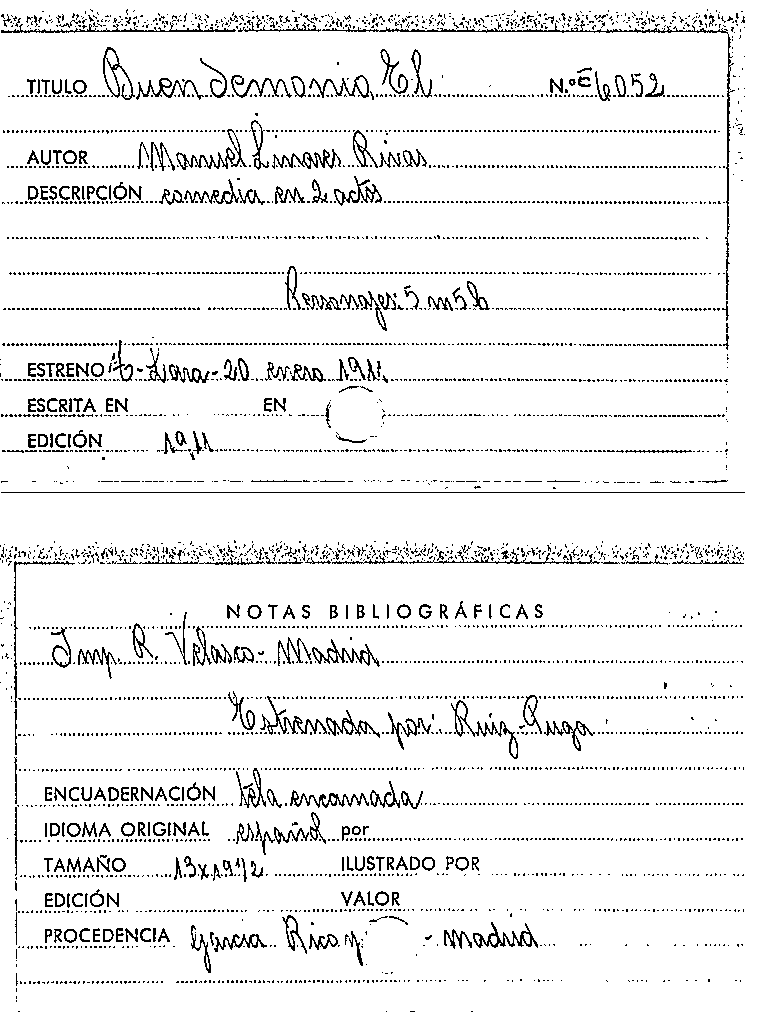 TITULO Buen demonio, El N.º E6052
AUTOR Manuel Linares Rivas
DESCRIPCIÓN comedia en 2 actos
Personajes: 5 m 5 h
ESTRENO T-Lara-20 enero 1911
ESCRITA EN EN
EDICIÓN 1911
NOTAS BIBLIOGRÁFICAS
Imp. R. Velasco-Madrid
Estrenada por: Ruiz-Puga
ENCUADERNACIÓN tela encarnada
IDIOMA ORIGINAL español por
TAMAÑO 13x19½ ILUSTRADO POR
EDICIÓN VALOR
PROCEDENCIA García Rico y - Madrid